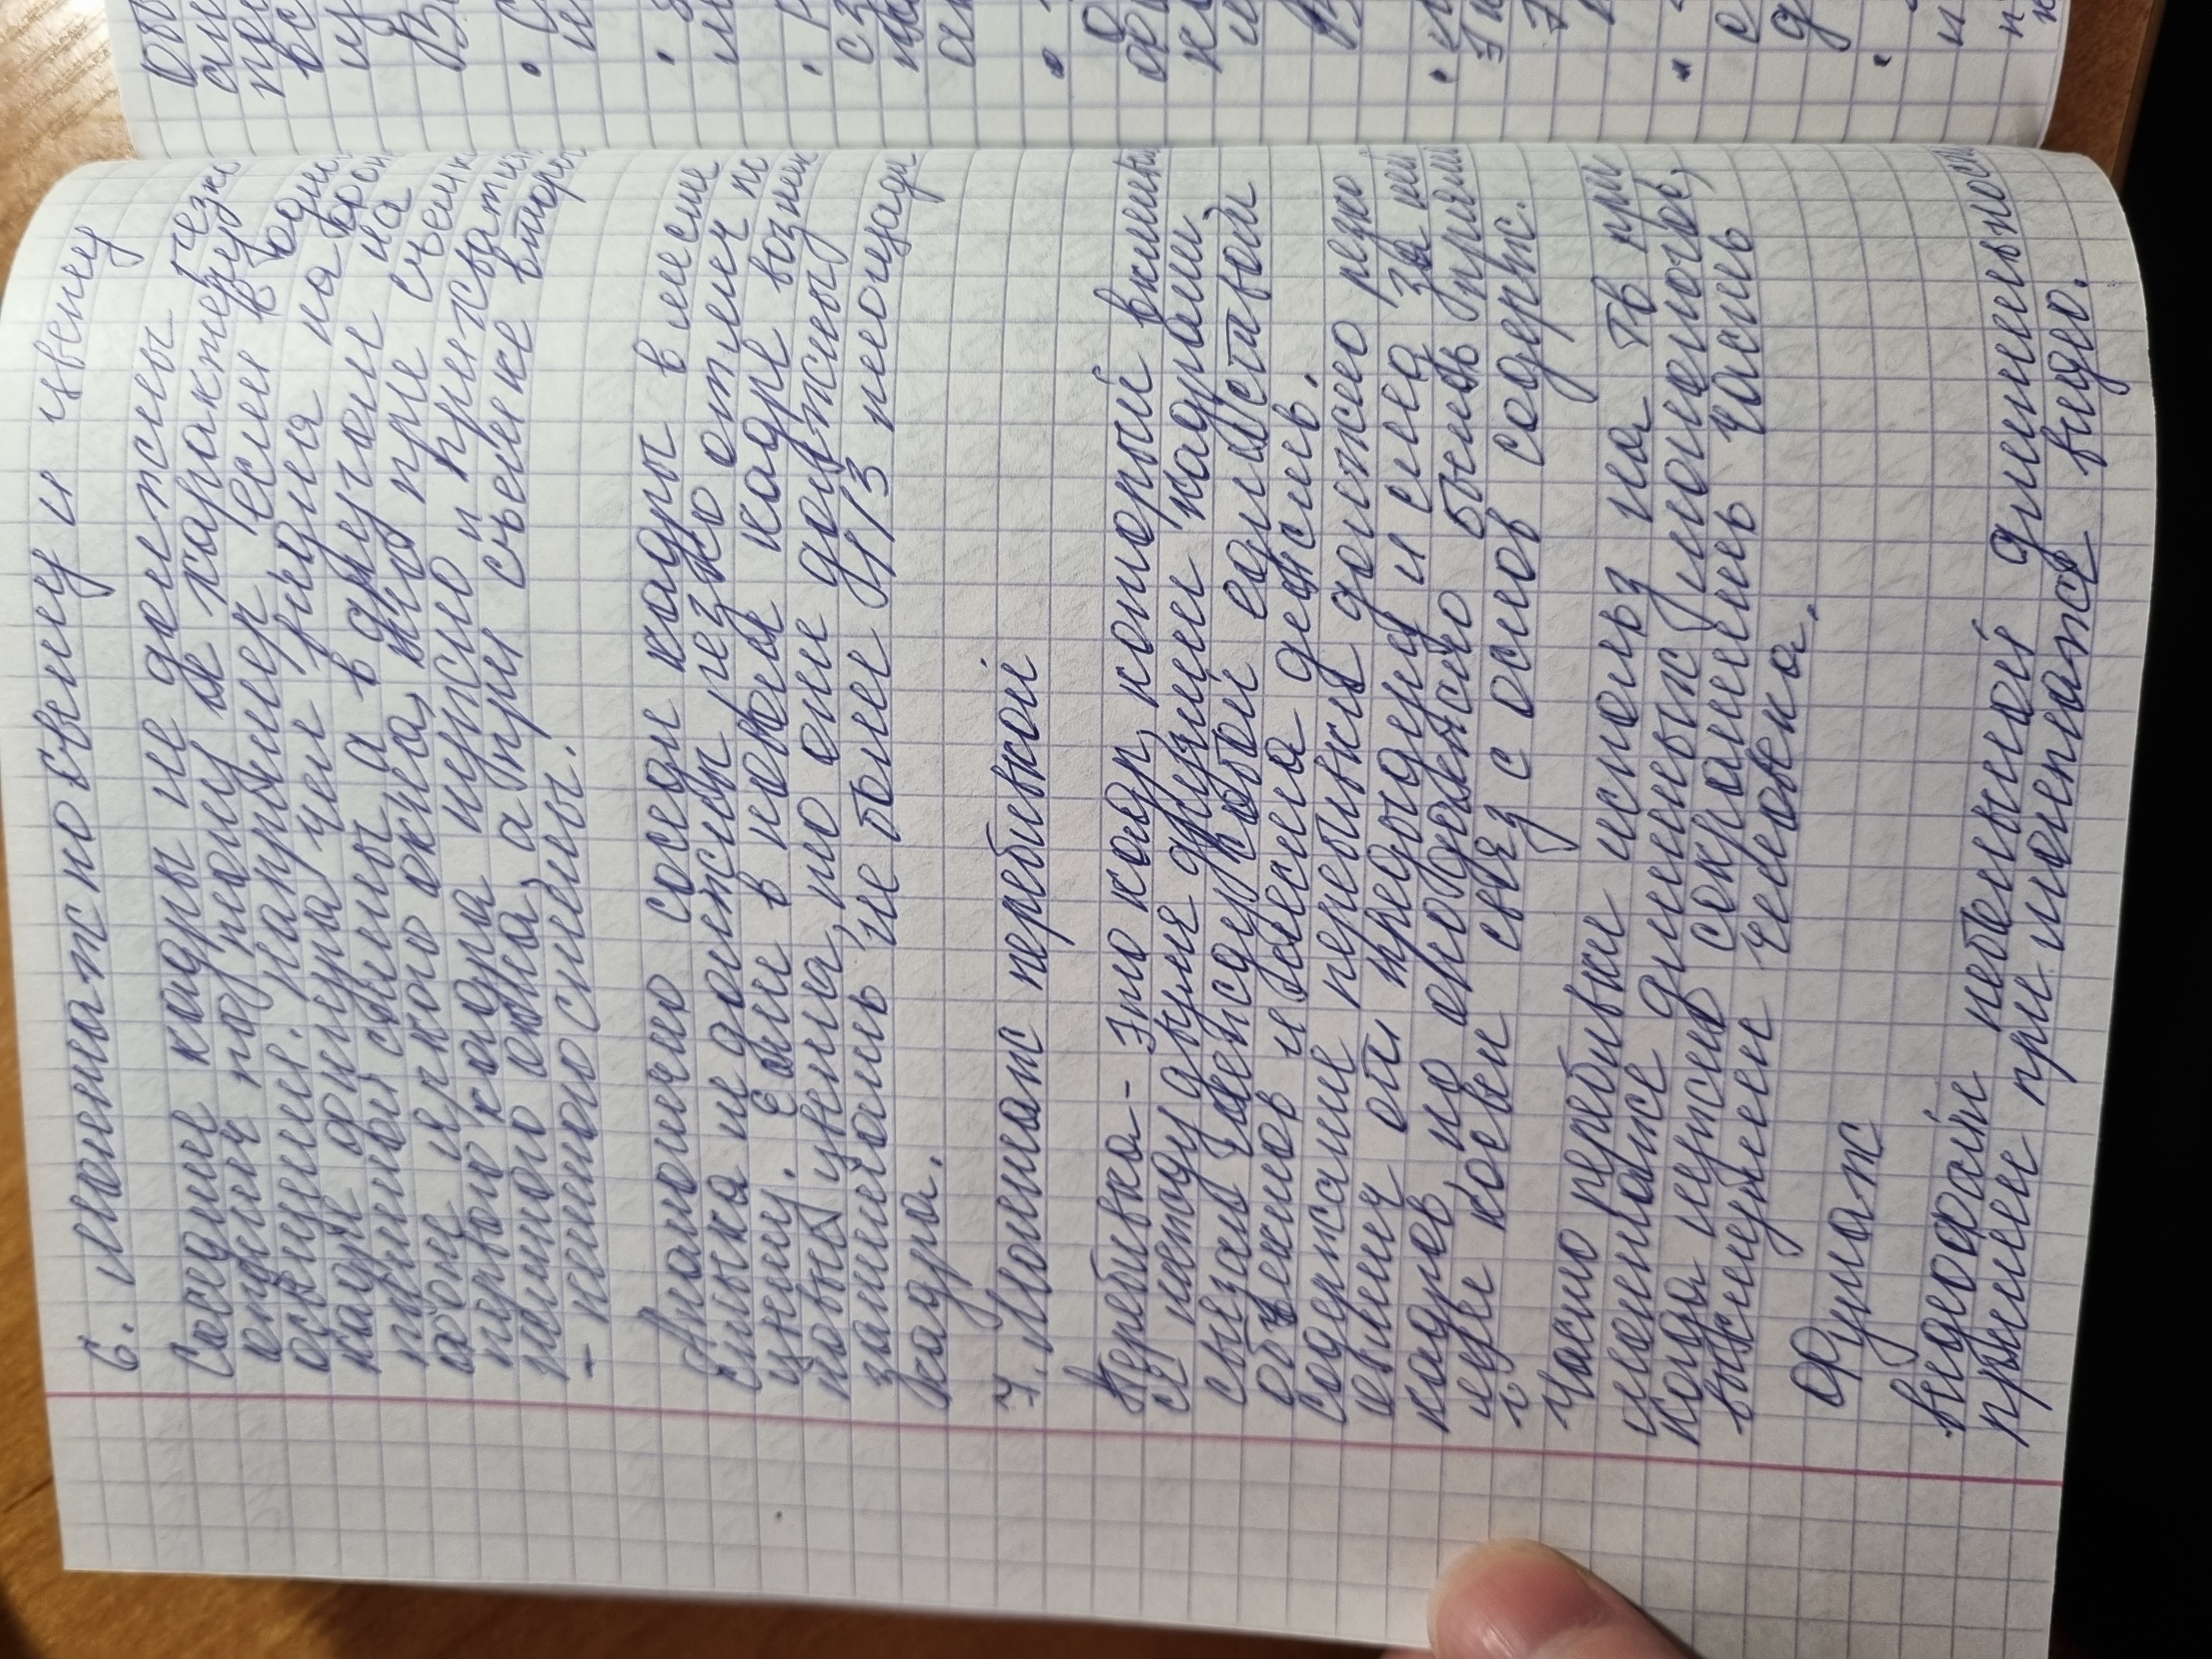 6. Монтаж по свету и цвету
Соседние кадры не должны резко
отлич по тону и характеру
освещения. Например, если в одном
кадре фигура чел видна на фоне
темной стены, а в другом на
фоне яркого окна, то при съемке
первого кадра нужно "прихватить"
немного окна, а при съемке второго
- немного стены.
Аналогично соседн кадры в месте
стыка не должны резко отлич по
цвету. Если в новом кадре возник
новые цвета, то они должны
занимать не более 1/3 площади
кадра.
7. Монтаж перебивкой
Перебивка - это кадр, который вклеив
ся между двумя другими кадрами,
связан между собой единством
объектов и места действ.
содержание перебивки должно резко
отлич от предыдущ и след за ней
кадров, но оно должно быть прямо
или косвен связ с основ содерж.
Часто перебивки использ на тв при
монтаже длинных монологов,
когда нужно сократить часть
выступлен человека.
Футаж
Видеофайл небольшой длительности
примен при монтаже видео.